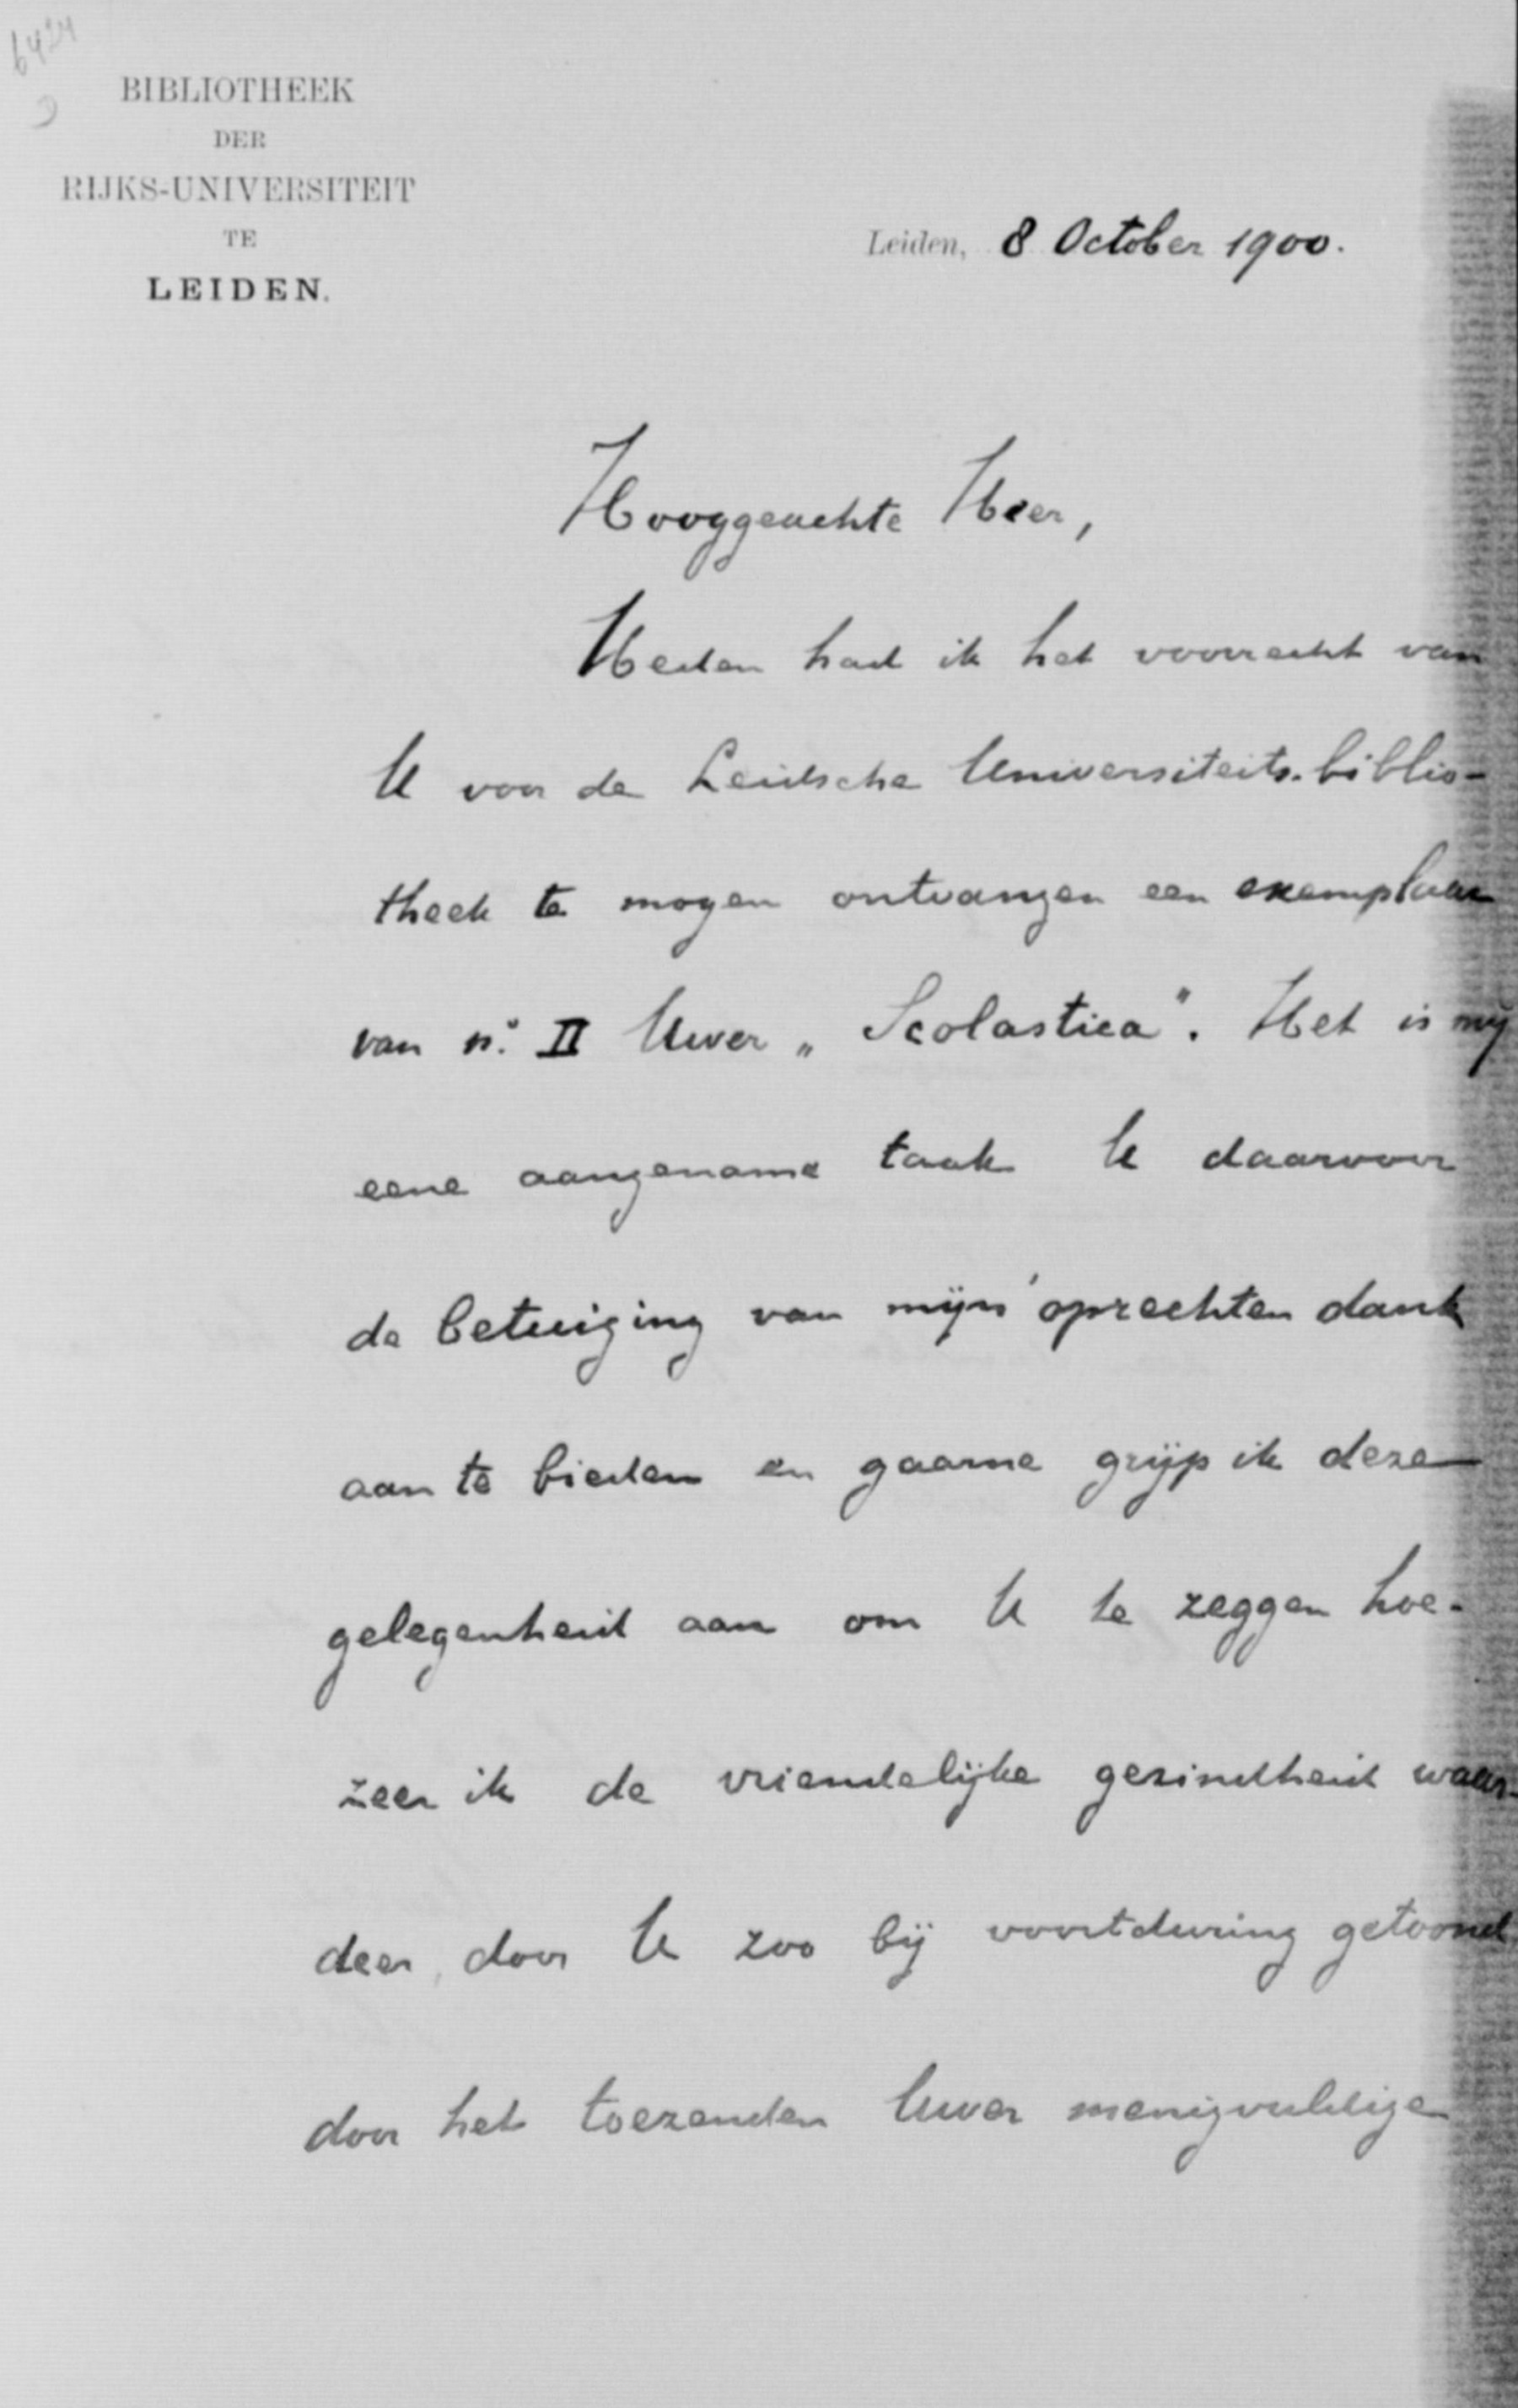 6424
BIBLIOTHEEK
DER
RIJKS-UNIVERSITEIT
TE
LEIDEN.
Leiden, 8 October 1900.
Hooggeachte Heer,
Heden had ik het voorrecht van
U voor de Leidsche Universiteits-biblio-
theek te mogen ontvangen een exemplaar
van n.º II Uwer „Scolastica". Het is mij
eene aangename taak U daarvoor
de betuiging van mijn' oprechten dank
aan te bieden en gaarne grijp ik deze
gelegenheid aan om U te zeggen hoe-
zeer ik de vriendelijke gezindheid waar-
deer, door U zoo bij voortduring getoond
door het toezenden Uwer menigvuldige